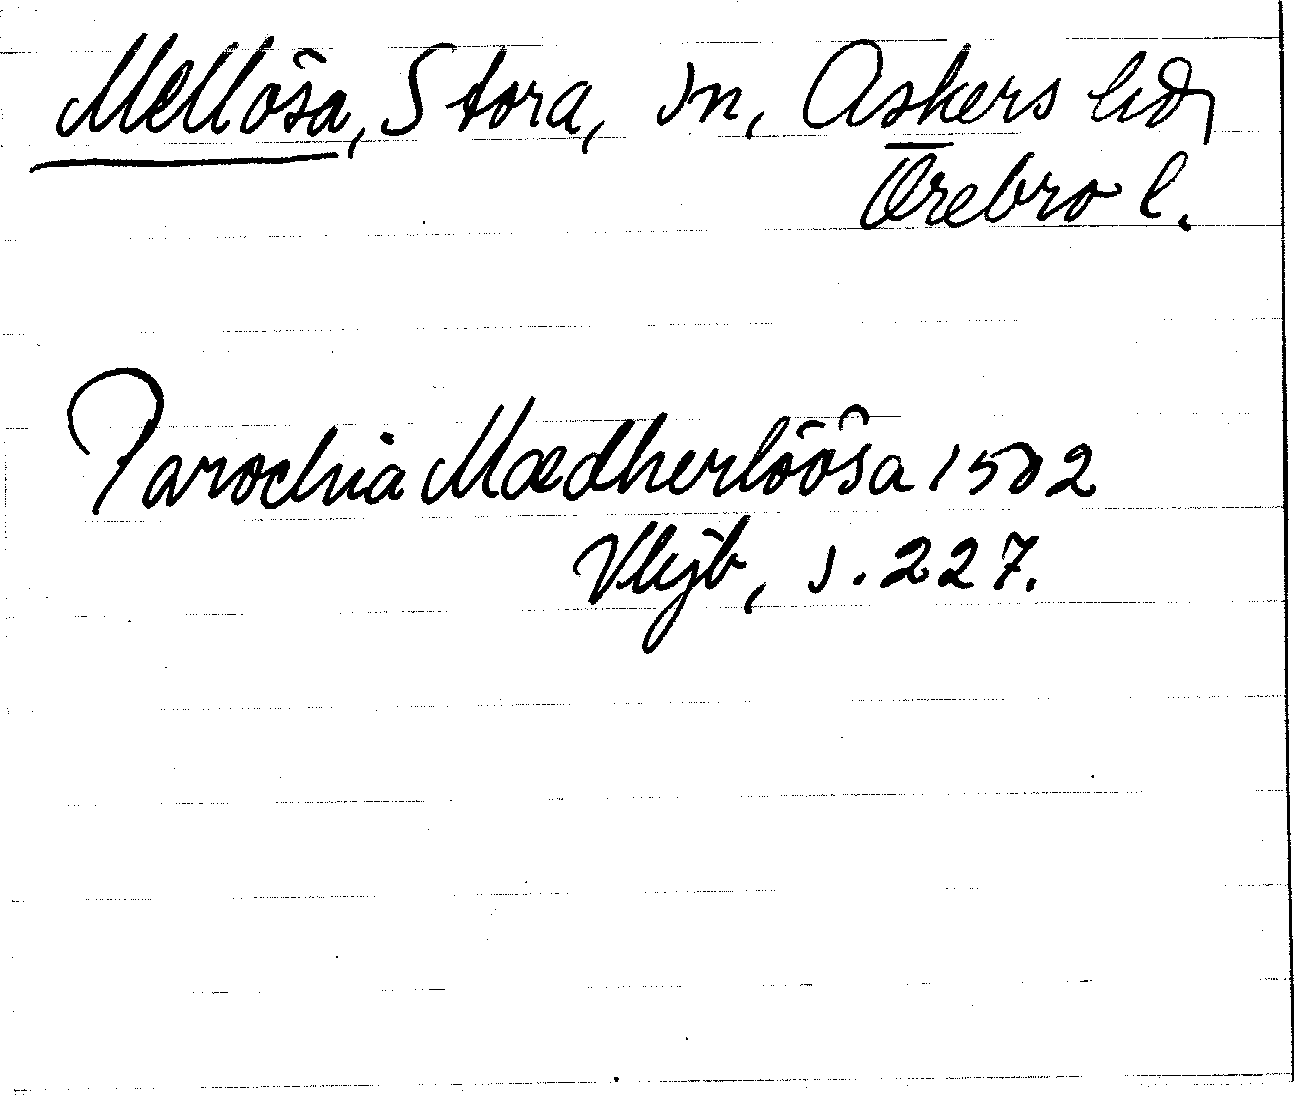 Mellösa, Stora, sn, Askers hd,
Örebro l.
Parochia Mædherlöösa 1502
Vkjb, s. 227.